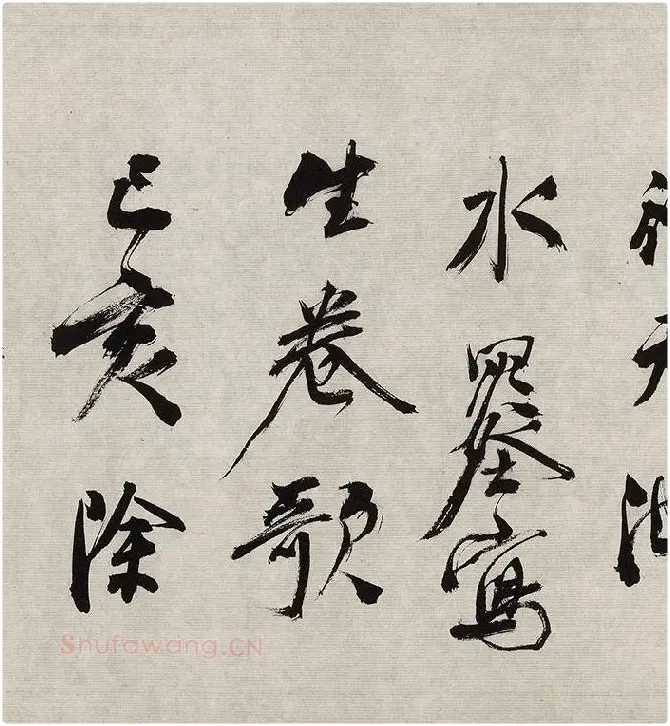 水墨寫
生卷歌
己亥除
Shufawang.CN